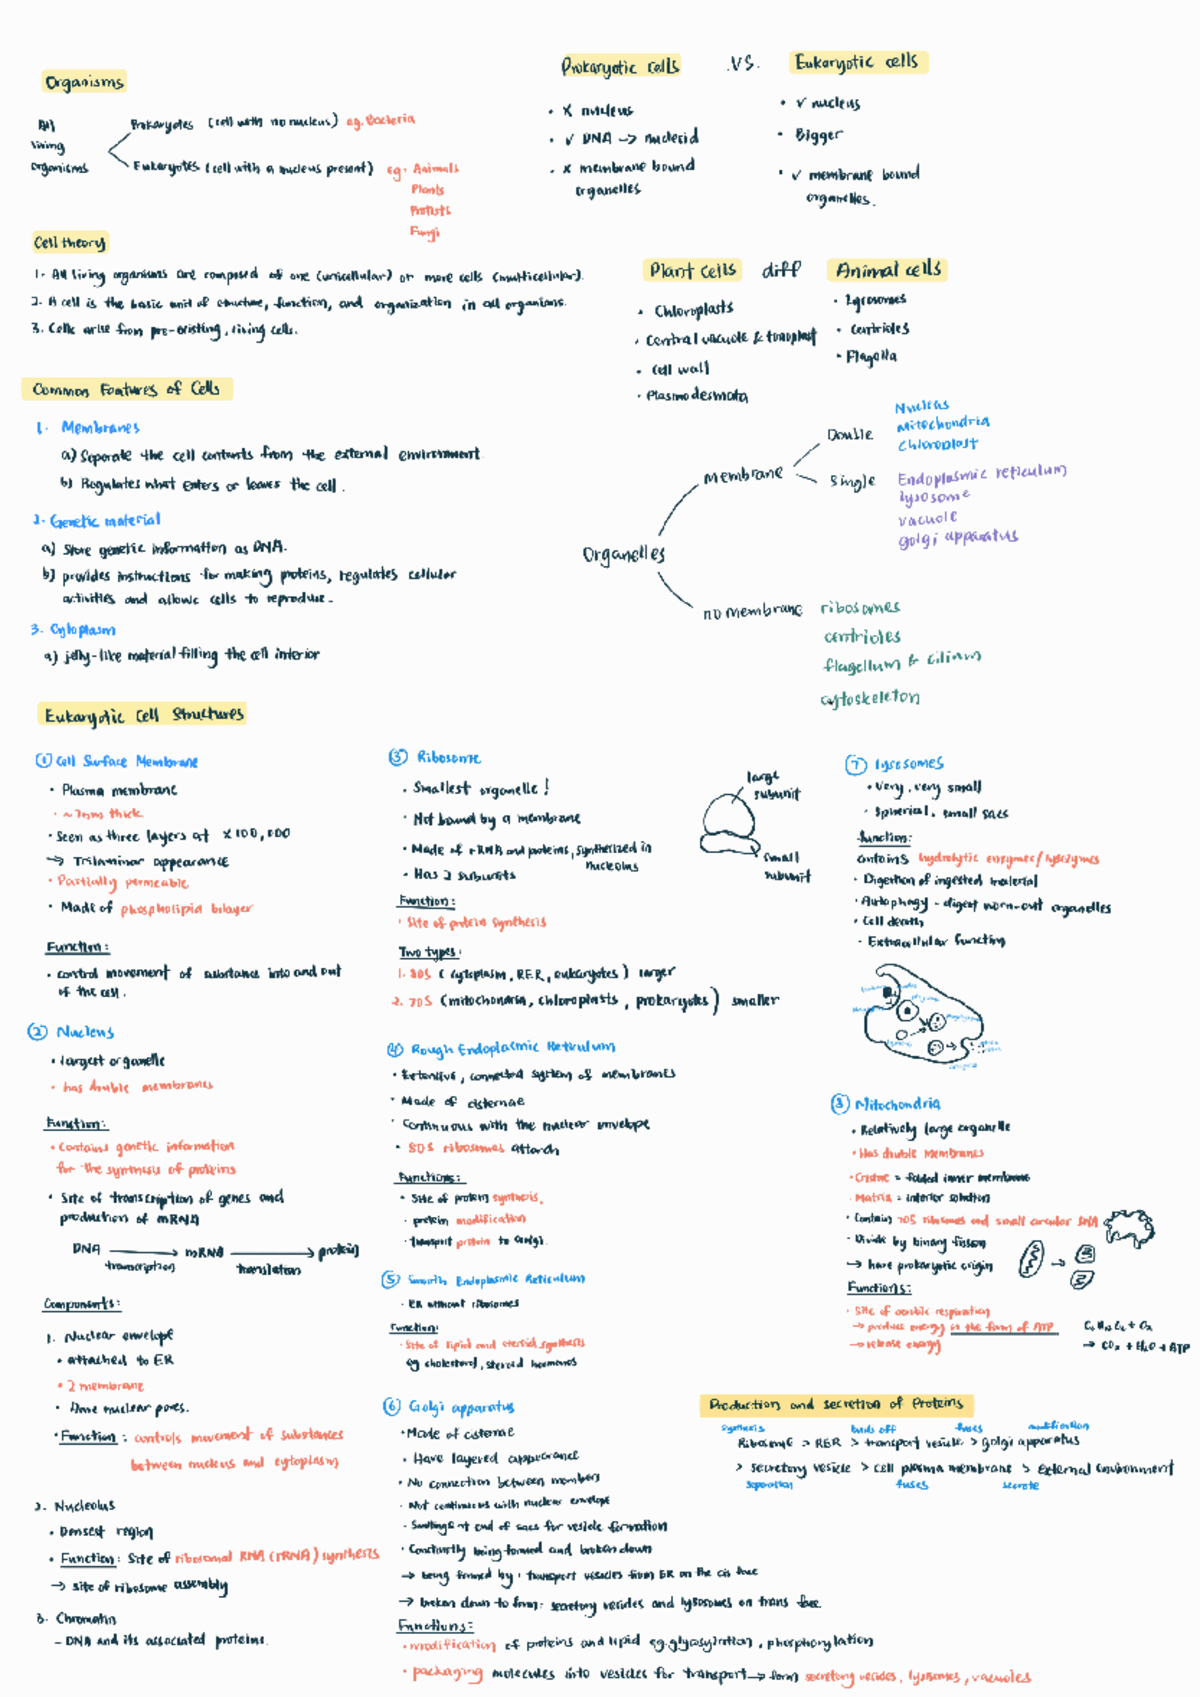 Organisms
All living organisms
Prokaryotes (cell with no nucleus) eg. Bacteria
Eukaryotes (cell with a nucleus present) eg. Animals
Plants
Protists
Fungi
Prokaryotic cells VS. Eukaryotic cells
• x nucleus
• ✓ DNA -> nucleoid
• x membrane bound
organelles
• ✓ nucleus
• Bigger
• ✓ membrane bound
organelles.
Cell theory
1. All living organisms are composed of one (unicellular) or more cells (multicellular).
2. A cell is the basic unit of structure, function, and organization in all organisms.
3. Cells arise from pre-existing, living cells.
Plant cells diff Animal cells
• Chloroplasts
• Central vacuole & tonoplast
• Cell wall
• Plasmodesmata
• Lysosomes
• Centrioles
• Flagella
Common Features of Cells
1. Membranes
a) Separate the cell contents from the external environment
b) Regulates what enters or leaves the cell.
2. Genetic material
a) Store genetic information as DNA.
b) provides instructions for making proteins, regulates cellular
activities and allows cells to reproduce.
3. Cytoplasm
a) jelly-like material filling the cell interior
Organelles
membrane
Double
Nucleus
Mitochondria
Chloroplast
Single
Endoplasmic reticulum
lysosome
vacuole
golgi apparatus
no membrane
ribosomes
centrioles
flagellum & cilium
cytoskeleton
Eukaryotic Cell Structures
① Cell Surface Membrane
• Plasma membrane
• ~7nm thick
• Seen as three layers at x100,000
-> Trilaminar appearance
• Partially permeable
• Made of phospholipid bilayer
Function:
• control movement of substance into and out
of the cell.
② Nucleus
• largest organelle
• has double membranes
Function:
• Contains genetic information
for the synthesis of proteins
• Site of transcription of genes and
production of mRNA
DNA -> mRNA -> protein
transcription translation
Components:
1. Nuclear envelope
• attached to ER
• 2 membrane
• Have nuclear pores.
• Function: controls movement of substances
between nucleus and cytoplasm
2. Nucleolus
• Densest region
• Function: Site of ribosomal RNA (rRNA) synthesis
-> site of ribosome assembly
3. Chromatin
- DNA and its associated proteins.
③ Ribosome
• Smallest organelle!
• Not bound by a membrane
• Made of rRNA and proteins, synthesized in
nucleolus
• Has 2 subunits
large subunit
small subunit
Function:
• Site of protein synthesis
Two types:
1. 80S (cytoplasm, RER, eukaryotes) larger
2. 70S (mitochondria, chloroplasts, prokaryotes) smaller
④ Rough Endoplasmic Reticulum
• Extensive, connected system of membranes
• Made of cisternae
• Continuous with the nuclear envelope
• 80S ribosomes attach
Functions:
• Site of protein synthesis,
• protein modification
• transport protein to Golgi.
⑤ Smooth Endoplasmic Reticulum
• ER without ribosomes
Function:
• Site of lipid and steroid synthesis
eg cholesterol, steroid hormones
⑥ Golgi apparatus
• Made of cisternae
• Have layered appearance
• No connection between members
• Not continuous with nuclear envelope
• Swellings at end of sacs for vesicle formation
• Constantly being formed and broken down
-> being formed by: transport vesicles from ER on the cis face
-> broken down to form: secretory vesicles and lysosomes on trans face.
Functions:
• modification of proteins and lipid eg. glycosylation, phosphorylation
• packaging molecules into vesicles for transport -> form secretory vesicles, lysosomes, vacuoles
⑦ lysosomes
• Very, very small
• Spherical, small sacs
function:
contains hydrolytic enzymes/lysozymes
• Digestion of ingested material
• Autophagy - digest worn-out organelles
• Cell death
• Extracellular function
⑧ Mitochondria
• Relatively large organelle
• Has double Membranes
• Cristae = folded inner membrane
• Matrix = interior solution
• Contain 70S ribosomes and small circular DNA
• Divide by binary fission
-> have prokaryotic origin
Functions:
• Site of aerobic respiration
-> produce energy in the form of ATP
-> release energy
C₆H₁₂O₆ + O₂
-> CO₂ + H₂O + ATP
Production and secretion of Proteins
synthesis buds off fuses modification
Ribosome > RER > transport vesicle > golgi apparatus
> secretory vesicle > cell plasma membrane > External environment
separation fuses secrete